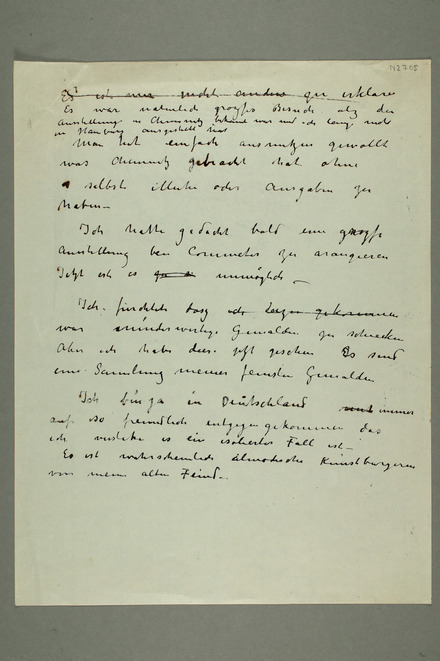 N2705
Es ist nur nicht anders zu erklären
Es war natürlich groszes Besuch als die
Ausstellung in Chemnitz bekannt war und ich lang nicht
in Hamburg ausgestellt hat
Man hat einfach ausnutzen gewollt
was Chemnitz gebracht hat ohne
selbst oder Ausgaben zu
haben—
Ich hatte gedacht bald eine groszе
Ausstellung bei Commeter zu arangieren
Jetzt ist es unmöglich —
Ich fürchtete dasz ich gekommen
war minderwertige Gemälden zu schicken
Aber ich habe diese jetzt gesehen Es sind
eine Sammlung meiner feinsten Gemälden
Ich bin ja in Deutschland immer
auf so freundlich entgegengekommen das
ich verstehe es ein isolierter Fall ist—
Es ist wahrscheinlich Kunstbürgeren
von meine alten Feind—